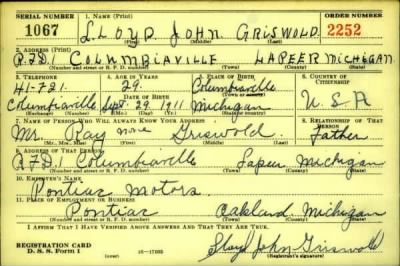 SERIAL NUMBER 1. NAME (Print) ORDER NUMBER
1067 LLOYD JOHN GRISWOLD 2252
(First) (Middle) (Last)
2. ADDRESS (Print)
R.F.D.1 COLUMBIAVILLE LAPEER MICHIGAN
(Number and street or R. F. D. number) (Town) (County) (State)
3. TELEPHONE 4. AGE IN YEARS 5. PLACE OF BIRTH 6. COUNTRY OF CITIZENSHIP
41-F21 29 Columbiaville
DATE OF BIRTH (Town or county)
Columbiaville Sept. 29 1911 Michigan U.S.A
(Exchange) (Number) (Mo.) (Day) (Yr.) (State or country)
7. NAME OF PERSON WHO WILL ALWAYS KNOW YOUR ADDRESS 8. RELATIONSHIP OF THAT PERSON
Mr. Ray none Griswold Father
(Mr., Mrs., Miss) (First) (Middle) (Last)
9. ADDRESS OF THAT PERSON
RFD.1 Columbiaville Lapeer Michigan
(Number and street or R. F. D. number) (Town) (County) (State)
10. EMPLOYER'S NAME
Pontiac Motors
11. PLACE OF EMPLOYMENT OR BUSINESS
Pontiac Oakland Michigan
(Number and street or R. F. D. number) (Town) (County) (State)
I AFFIRM THAT I HAVE VERIFIED ABOVE ANSWERS AND THAT THEY ARE TRUE.
REGISTRATION CARD
D. S. S. Form 1 (over) 16—17105 Lloyd John Griswold
(Registrant's signature)